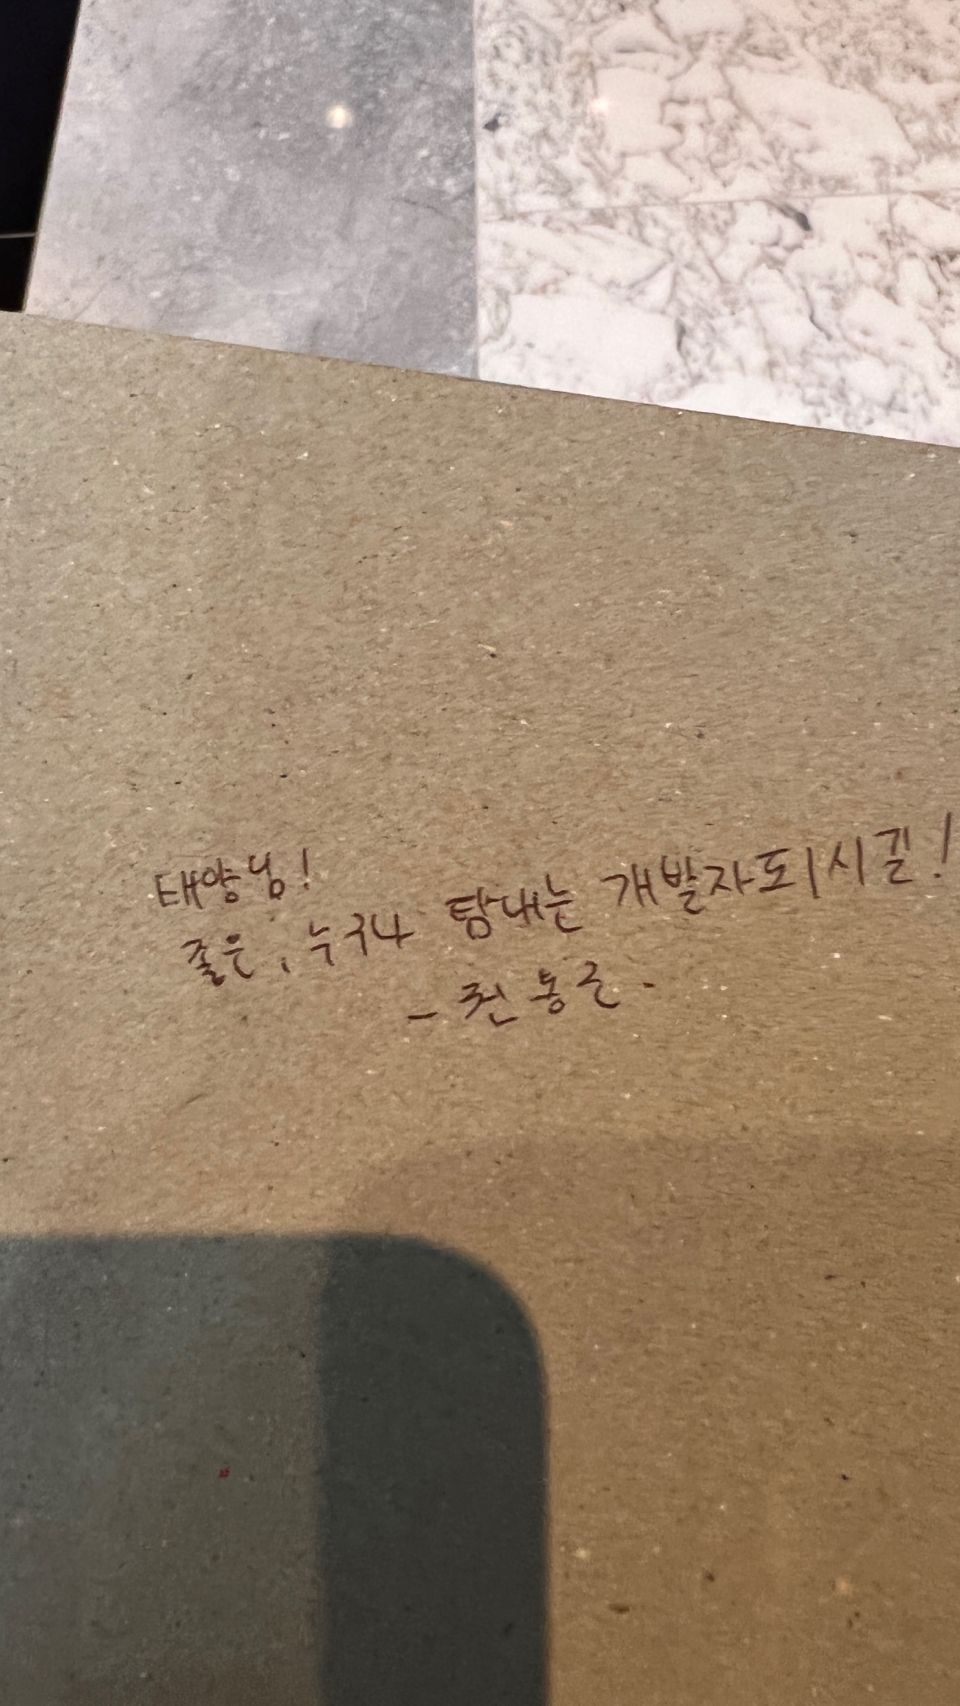 태양님!
좋은, 누구나 탐내는 개발자 되시길!
- 전동근.